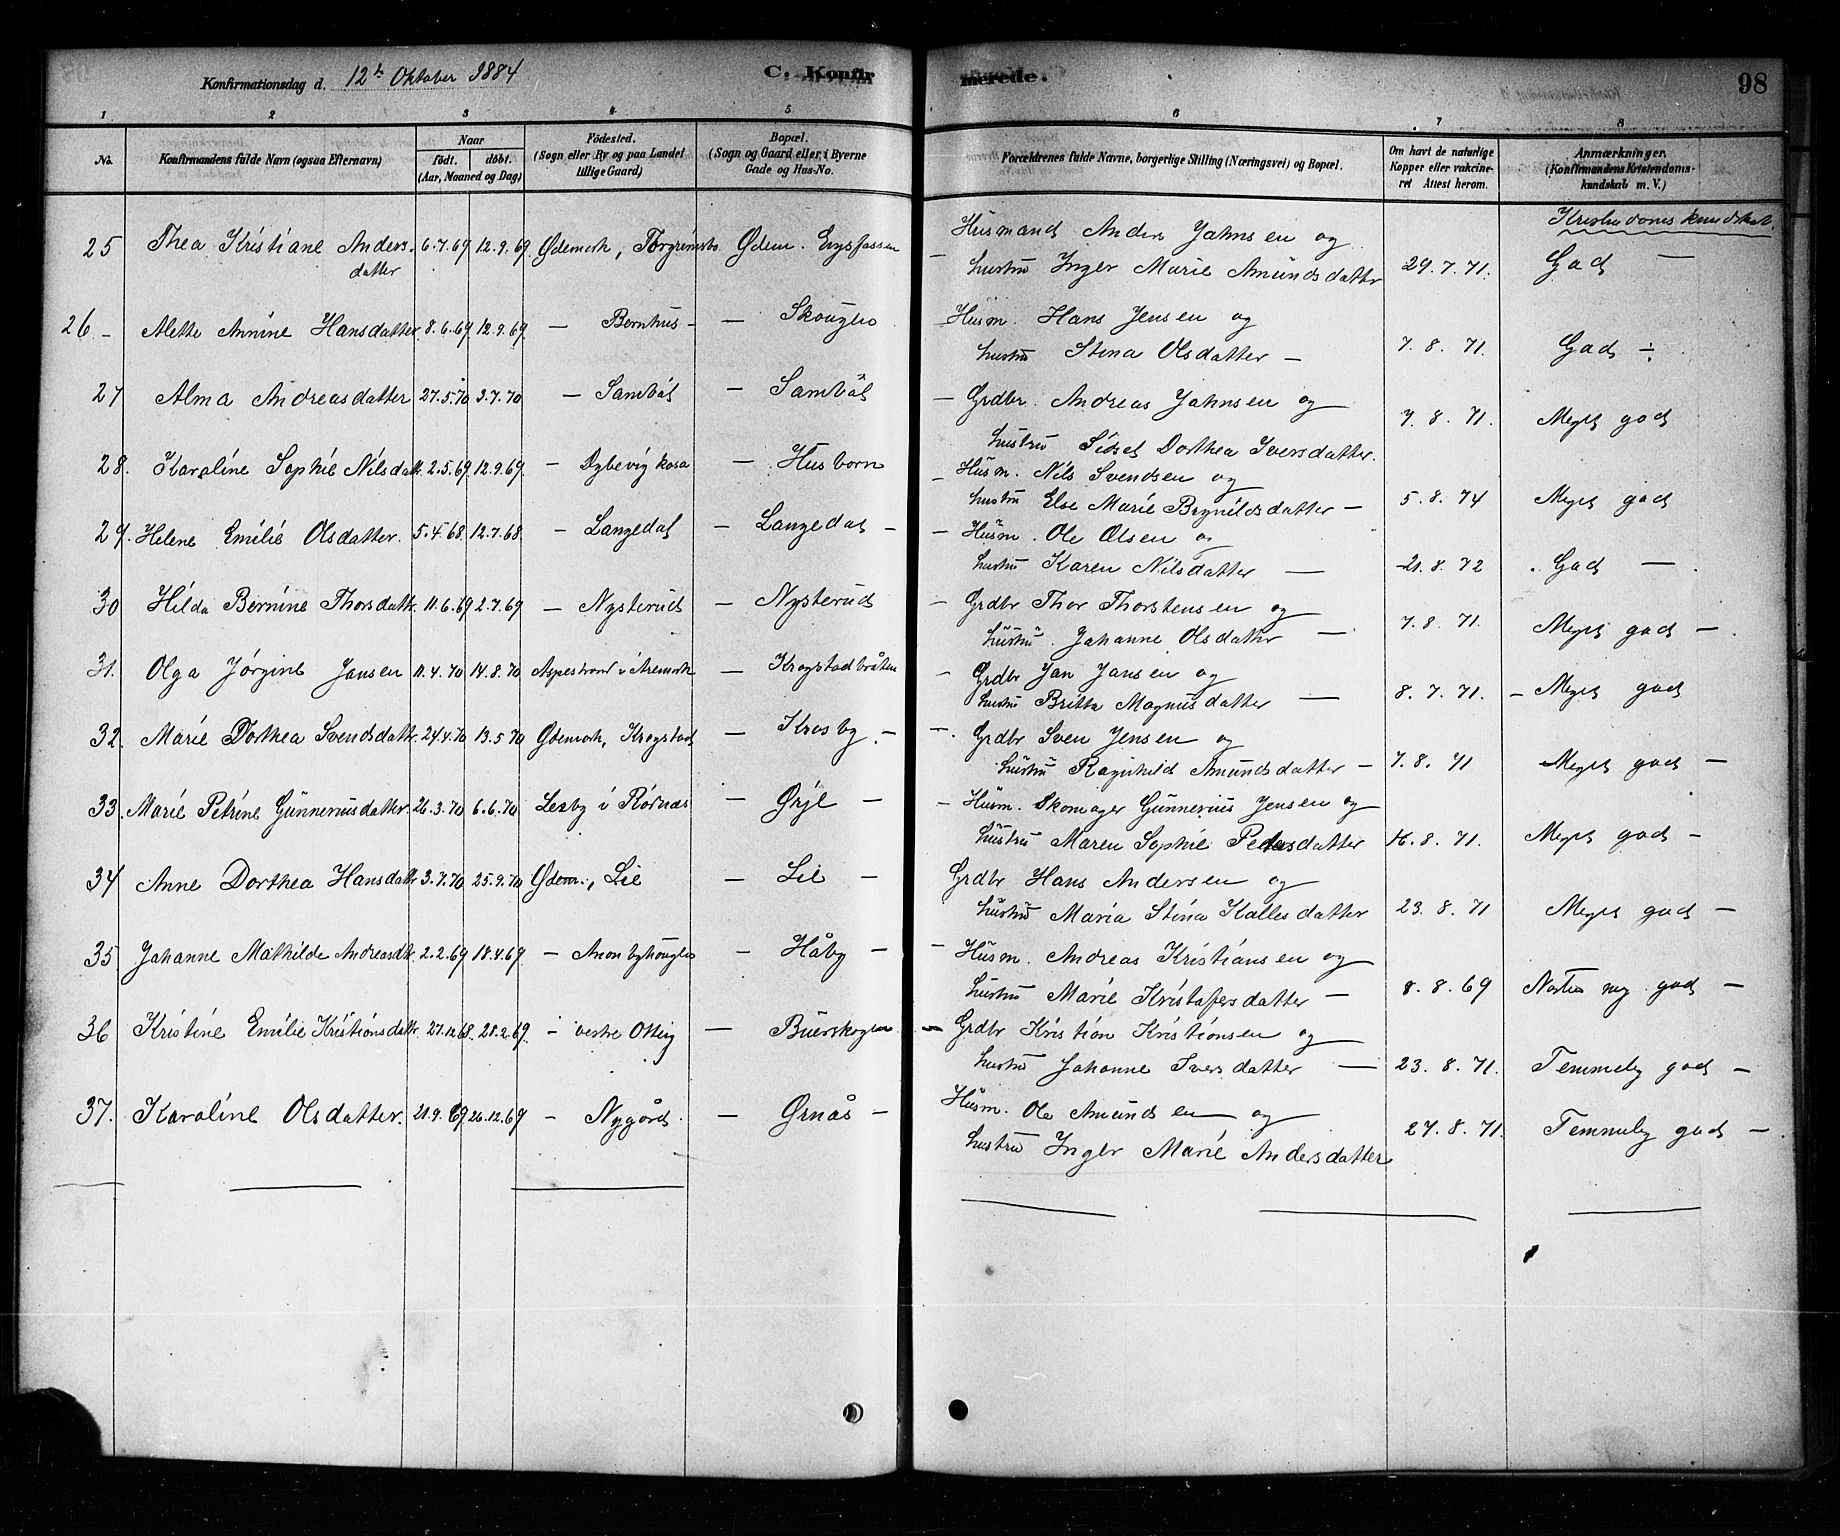 Konfirmationsdag d. 12te Oktober 1884 C. Konfirmerede. 98
1 2 3 4 5 6 7 8
No. Konfirmandens fulde Navn (ogsaa Efternavn) Naar født. døbt. (Aar, Maaned og Dag) Fødested. (Sogn eller By og paa Landet tillige Gaard) Bopæl. (Sogn og Gaard eller i Byerne Gade og Hus-No. Forældrenes fulde Navne, borgerlige Stilling (Næringsvei) og Bopæl. Om havt de naturlige Kopper eller vakcineret Attest herom. Anmærkninger. (Konfirmandens Kristendomskundskab m. V.)
Kristendomskundskab.
25 Thea Kristiane Andersdatter 6.7.69 12.9.69 Ødemark, Torgrimsbo Ødem. Husmand Anders Jahnsen og
hustru Inger Marie Amundsdatter 29.7.71. God —
26 – Alette Annine Hansdatter 8.6.69 12.9.69 — Bernhus – — Skouglio Husm. Hans Jensen og
hustru Stina Olsdatter — 7.8.71. God ÷
27 Alma Andreasdatter 27.5.70 3.7.70 — Sambøl — Sambøl — Grdbr. Andreas Jahnsen og
hustru Sidsel Dorthea Iversdatter. 7.8.71. Meget god
28. Karoline Sophie Nilsdatt. 2.5.69 12.9.69. — Dybevigkasa — Husborn — Husm. Nils Svendsen og
hustru Else Marie Brynildsdatter — 5.8.74 Meget god
29. Helene Emilie Olsdatter. 5.4.68 12.7.68. — Langedal — Langedal — — Husm. Ole Olsen og
hustru Karen Nilsdatter — 21.8.72 God —
30 Hilda Bernine Thorsdatt. 11.6.69 2.7.69 — Nysterud — Nysterud — Grdbr Thor Thorstensen og
hustru Johanne Olsdatter — 7.8.71. Meget god —
31. Olga Jørgine Jansen 11.4.70 14.8.70 Aspestrand i Aremark — Krogstadbråten — Grdbr Jan Jansen og
hustru Britta Magnusdatter — 8.7.71. – Meget god
32. Marie Dorthea Svendsdatt. 24.4.70 13.5.70 Ødemark, Krogstad — Krosby — — Grdbr Sven Jensen og
hustru Ragnhild Amundsdatter — 7.8.71 Meget god —
33. Marie Petrine Gunneriusdatter. 26.3.70 6.6.70 Lexby i Rørnæs — Ørje — — Husm. Skomager Gunnerius Jensen og
hustru Maren Sophie Pedersdatter 16.8.71. Meget god —
34 Anne Dorthea Hansdatt 3.7.70 25.9.70 Ødem., Lie — Lie — Grdbr Hans Andersen og
hustru Maria Stina Kallesdatter 23.8.71 Meget god —
35 Johanne Mathilde Andreasdtr. 2.2.69 18.4.69 — — Håby — — Husm. Andreas Kristiansen og
hustru Marie Kristofersdatter — 8.8.69 Næsten meg. god —
36 Kristine Emilie Kristiansdatt. 27.12.68. 28.2.69. — vestre Otteig — Buerskogen — Grdbr Kristian Kristiansen og
hustru Johanne Iversdatter — 23.8.71. Temmelig god —
37. Karoline Olsdatter. 21.9.69 26.12.69 — Nygård. — Ørnås — Husm. Ole Amundsen og
hustru Inger Marie Andersdatter 27.8.71. Temmelig god —